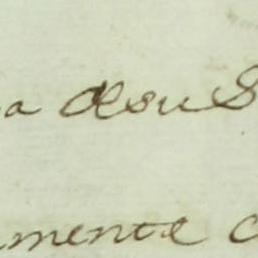 a desu S
mente c